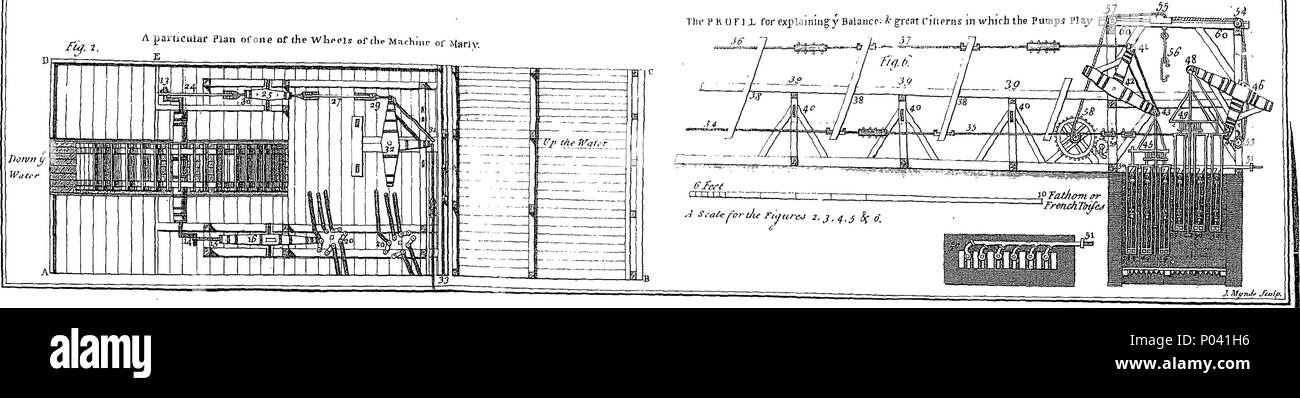 Fig. 2.
A particular Plan of one of the Wheels of the Machine of Marly.
D
E
C
13
24
25
27
29
32
Down ÿ
Water
Up the Water
14
16
20
20
33
A
B
The PROFIL for explaining ÿ Balance: & great Citterns in which the Pumps Play
57
55
54
60
60
36
37
41
56
Fig. 6.
48
42
46
39
39
39
38
38
38
40
40
40
58
43
49
34
35
53
45
51
6 Feet
10 Fathom or
French Toises
A Scale for the Figures 2, 3, 4, 5 & 6.
51
J. Mynde Sculp.
alamy
Image ID: P041H6
www.alamy.com